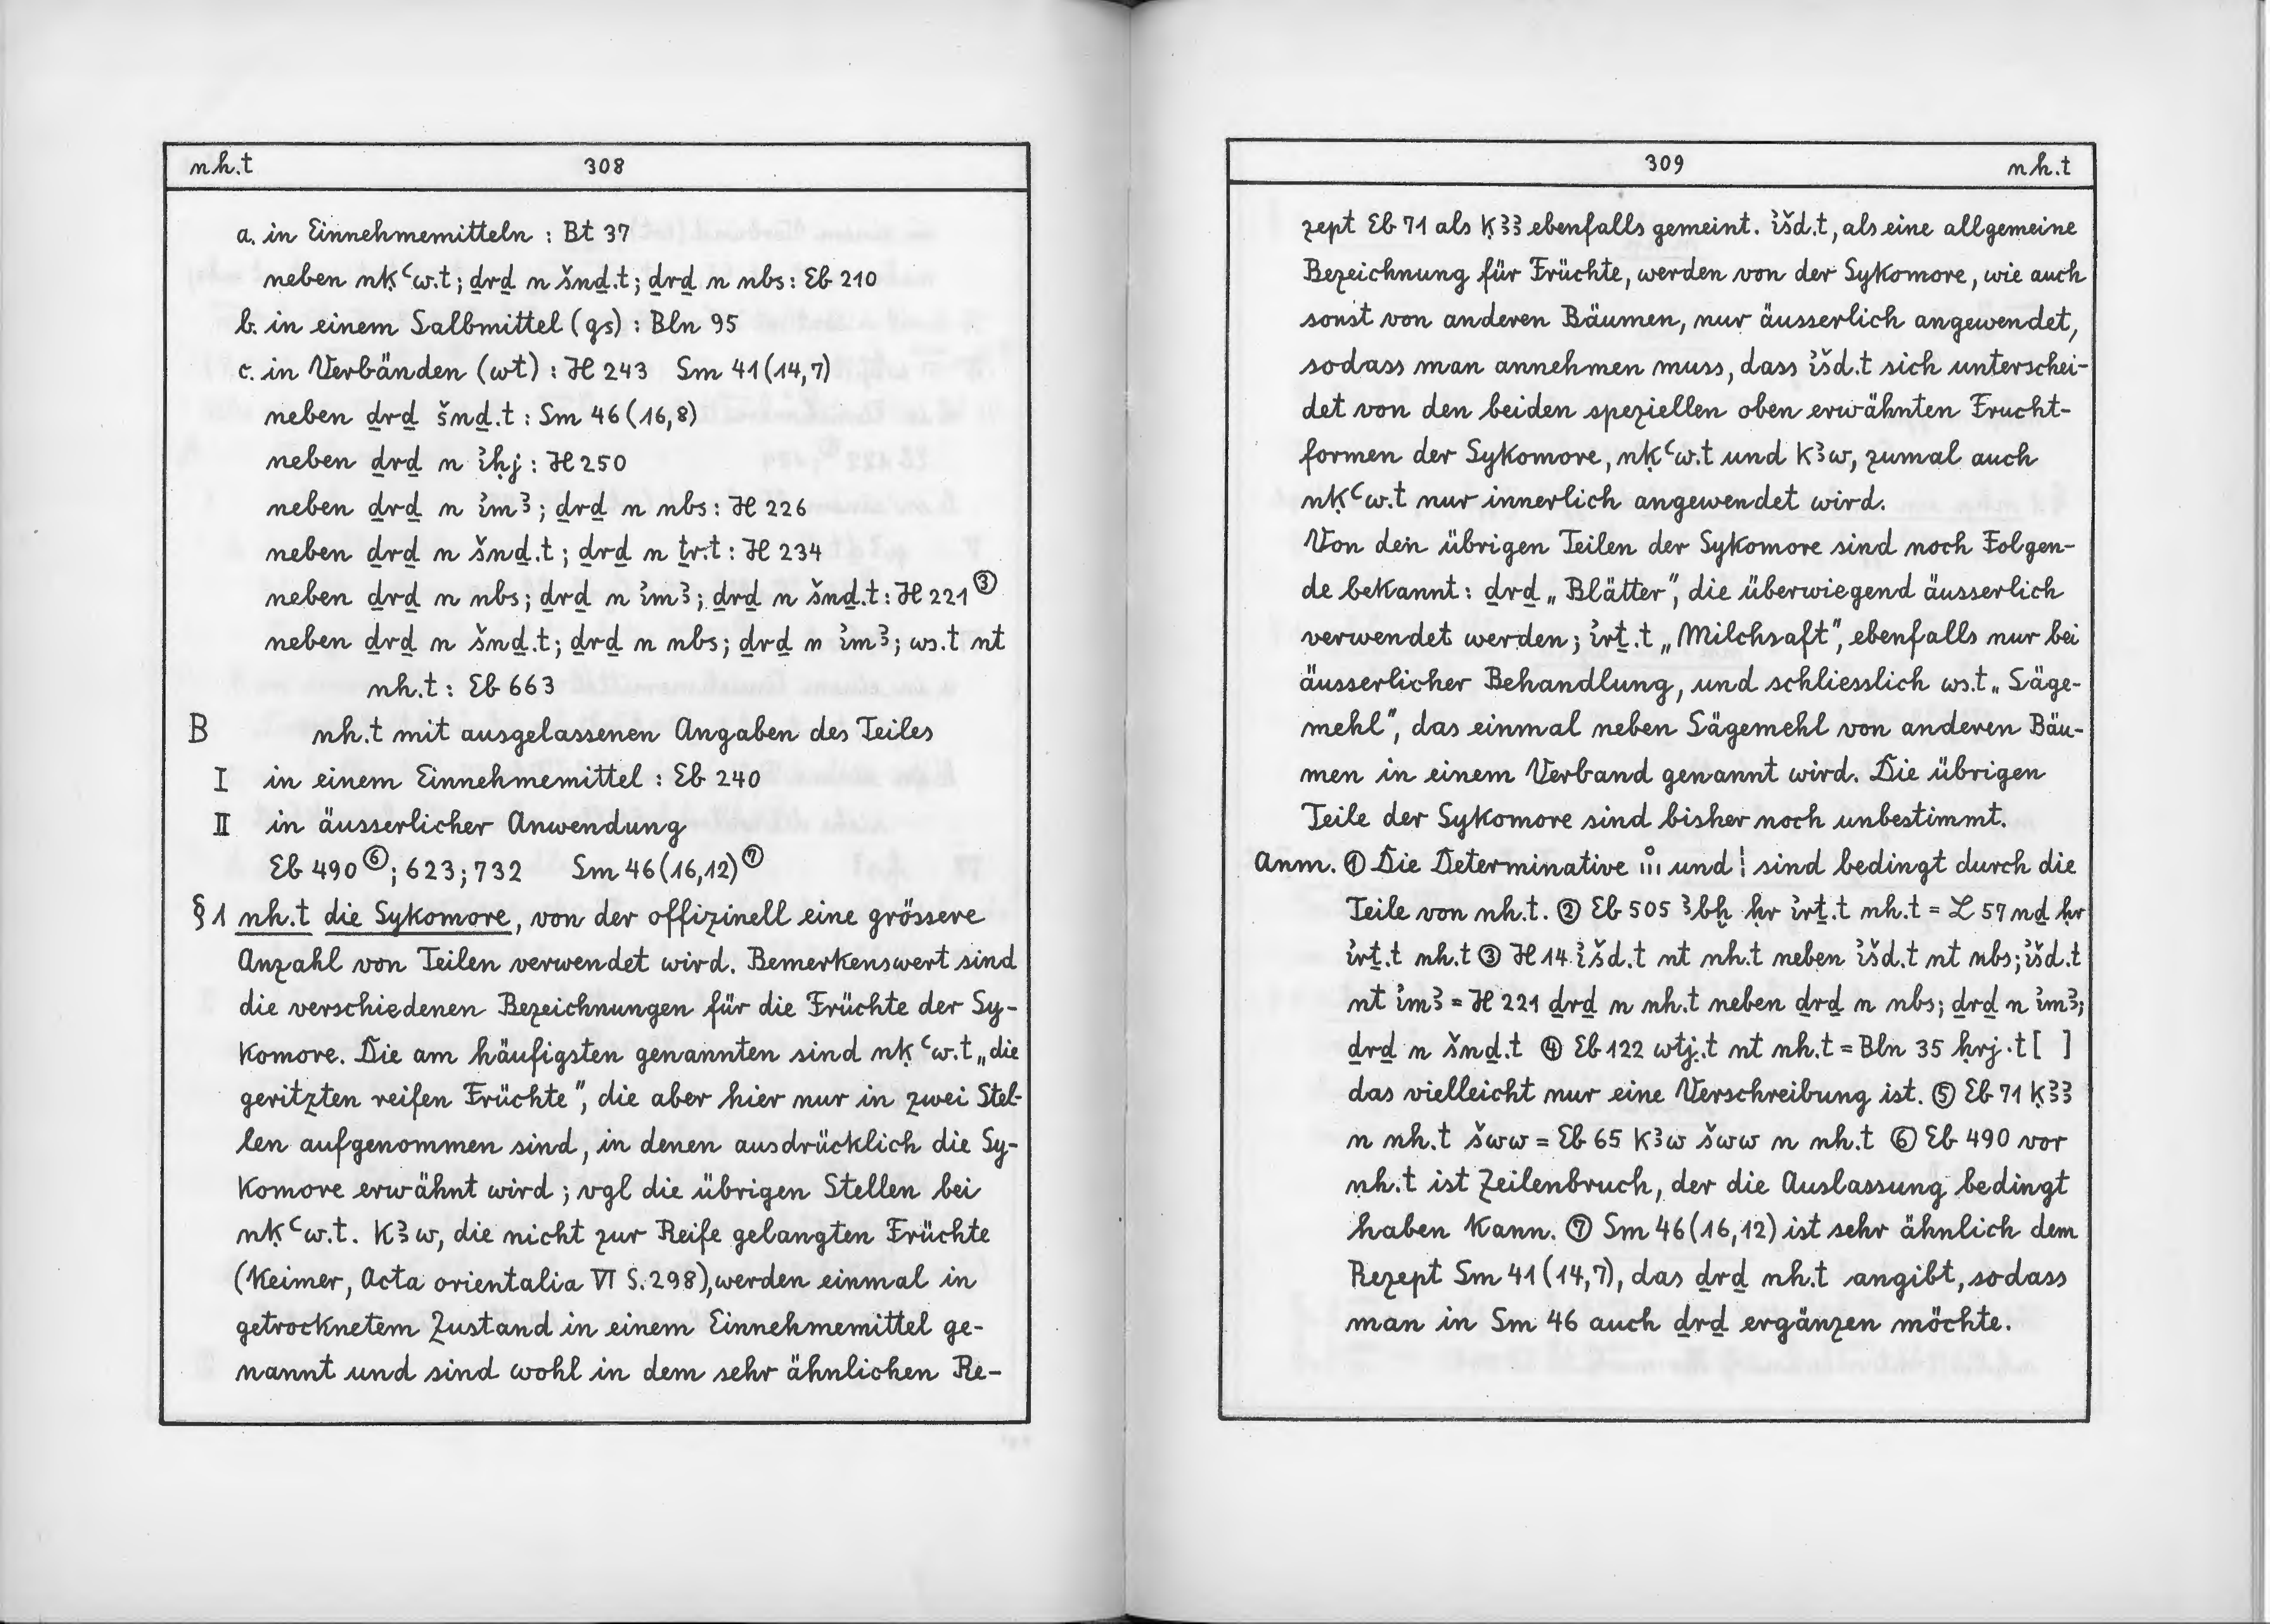 nh.t 308
a. in Einnehmemitteln : Bt 37
neben nḳꜥw.t; ḏrḏ n šnḏ.t; ḏrḏ n nbs: Eb 210
b. in einem Salbmittel (gs) : Bln 95
c. in Verbänden (wt) : H 243 Sm 41 (14,7)
neben ḏrḏ šnḏ.t : Sm 46 (16,8)
neben ḏrḏ n ỉḥj : H 250
neben ḏrḏ n ỉmꜣ; ḏrḏ n nbs: H 226
neben ḏrḏ n šnḏ.t; ḏrḏ n ṯr.t : H 234
neben ḏrḏ n nbs; ḏrḏ n ỉmꜣ; ḏrḏ n šnḏ.t: H 221 ③
neben ḏrḏ n šnḏ.t; ḏrḏ n nbs; ḏrḏ n ỉmꜣ; ws.t nt
nh.t : Eb 663
B nh.t mit ausgelassenen Angaben des Teiles
I in einem Einnehmemittel : Eb 240
II in äusserlicher Anwendung
Eb 490 ⑥; 623; 732 Sm 46 (16,12) ⑦
§ 1 nh.t die Sykomore, von der offizinell eine grössere
Anzahl von Teilen verwendet wird. Bemerkenswert sind
die verschiedenen Bezeichnungen für die Früchte der Sy-
komore. Die am häufigsten genannten sind nḳꜥw.t „die
geritzten reifen Früchte", die aber hier nur in zwei Stel-
len aufgenommen sind, in denen ausdrücklich die Sy-
komore erwähnt wird; vgl die übrigen Stellen bei
nḳꜥw.t. kꜣw, die nicht zur Reife gelangten Früchte
(Keimer, Acta orientalia VI S. 298), werden einmal in
getrocknetem Zustand in einem Einnehmemittel ge-
nannt und sind wohl in dem sehr ähnlichen Re-
309 nh.t
zept Eb 71 als ḳꜣꜣ ebenfalls gemeint. ỉšd.t, als eine allgemeine
Bezeichnung für Früchte, werden von der Sykomore, wie auch
sonst von anderen Bäumen, nur äusserlich angewendet,
sodass man annehmen muss, dass ỉšd.t sich unterschei-
det von den beiden speziellen oben erwähnten Frucht-
formen der Sykomore, nḳꜥw.t und kꜣw, zumal auch
nḳꜥw.t nur innerlich angewendet wird.
Von den übrigen Teilen der Sykomore sind noch Folgen-
de bekannt: ḏrḏ „Blätter", die überwiegend äusserlich
verwendet werden; ỉrṯ.t „Milchsaft", ebenfalls nur bei
äusserlicher Behandlung, und schliesslich ws.t „Säge-
mehl", das einmal neben Sägemehl von anderen Bäu-
men in einem Verband genannt wird. Die übrigen
Teile der Sykomore sind bisher noch unbestimmt.
Anm. ① Die Determinative und sind bedingt durch die
Teile von nh.t. ② Eb 505 ꜣbḫ ḥr ỉrṯ.t nh.t = L 57 nḏ ḥr
ỉrṯ.t nh.t ③ H 14 ỉšd.t nt nh.t neben ỉšd.t nt nbs; ỉšd.t
nt ỉmꜣ = H 221 ḏrḏ n nh.t neben ḏrḏ n nbs; ḏrḏ n ỉmꜣ;
ḏrḏ n šnḏ.t ④ Eb 122 wtj.t nt nh.t = Bln 35 ẖrj.t [ ]
das vielleicht nur eine Verschreibung ist. ⑤ Eb 71 ḳꜣꜣ
n nh.t šww = Eb 65 kꜣw šww n nh.t ⑥ Eb 490 vor
nh.t ist Zeilenbruch, der die Auslassung bedingt
haben kann. ⑦ Sm 46 (16,12) ist sehr ähnlich dem
Rezept Sm 41 (14,7), das ḏrḏ nh.t angibt, sodass
man in Sm 46 auch ḏrḏ ergänzen möchte.